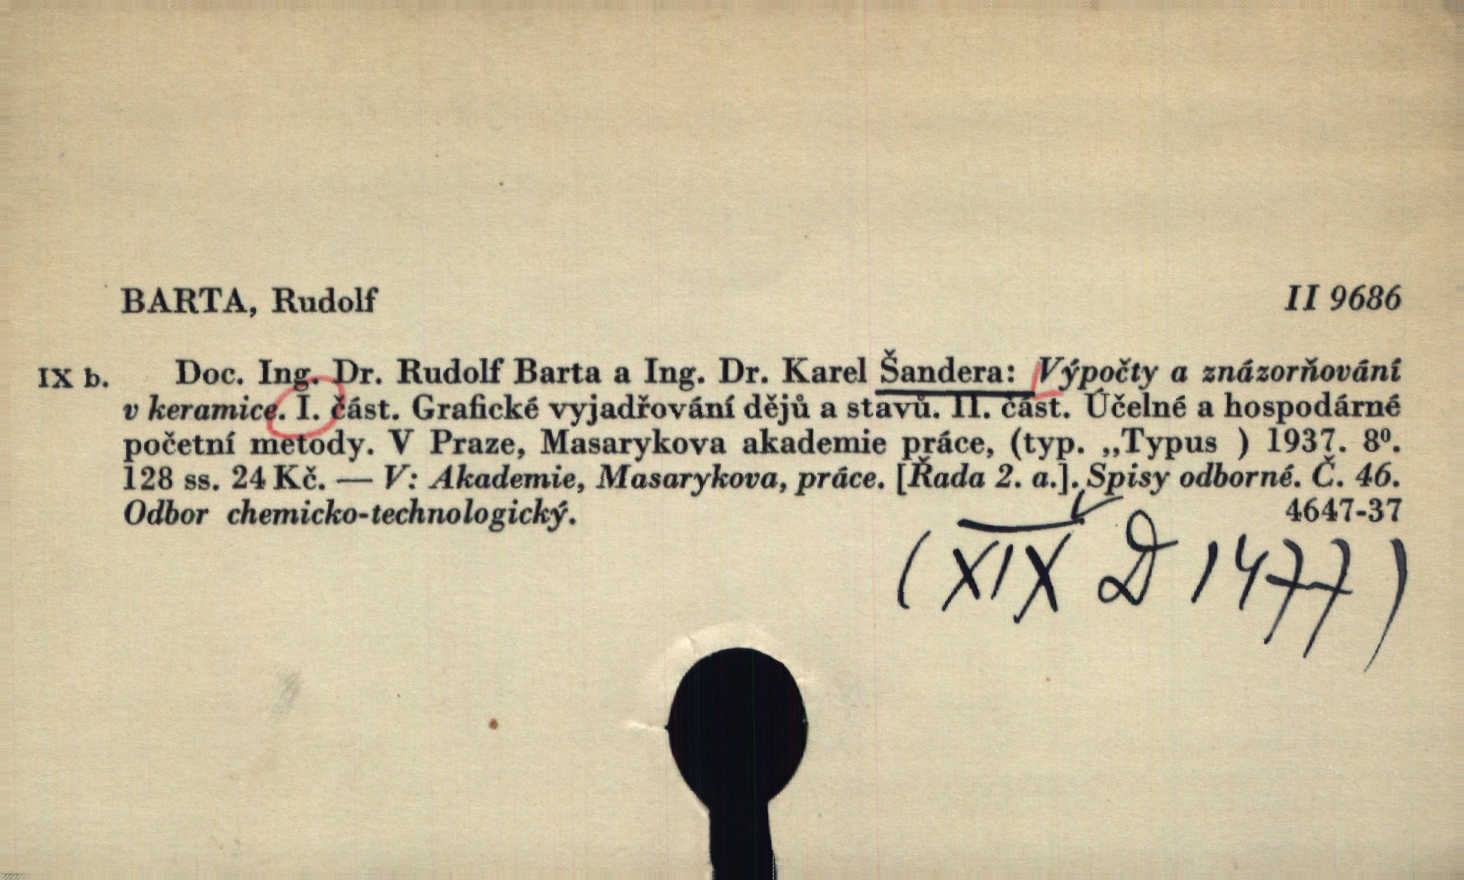 BARTA, Rudolf II 9686
IX b. Doc. Ing. Dr. Rudolf Barta a Ing. Dr. Karel Šandera: Výpočty a znázorňování
v keramice. I. část. Grafické vyjadřování dějů a stavů. II. část. Účelné a hospodárné
početní metody. V Praze, Masarykova akademie práce, (typ. ,,Typus ) 1937. 8⁰.
128 ss. 24 Kč. — V: Akademie, Masarykova, práce. [Řada 2. a.]. Spisy odborné. Č. 46.
Odbor chemicko-technologický. 4647-37
(XIX D 1477)